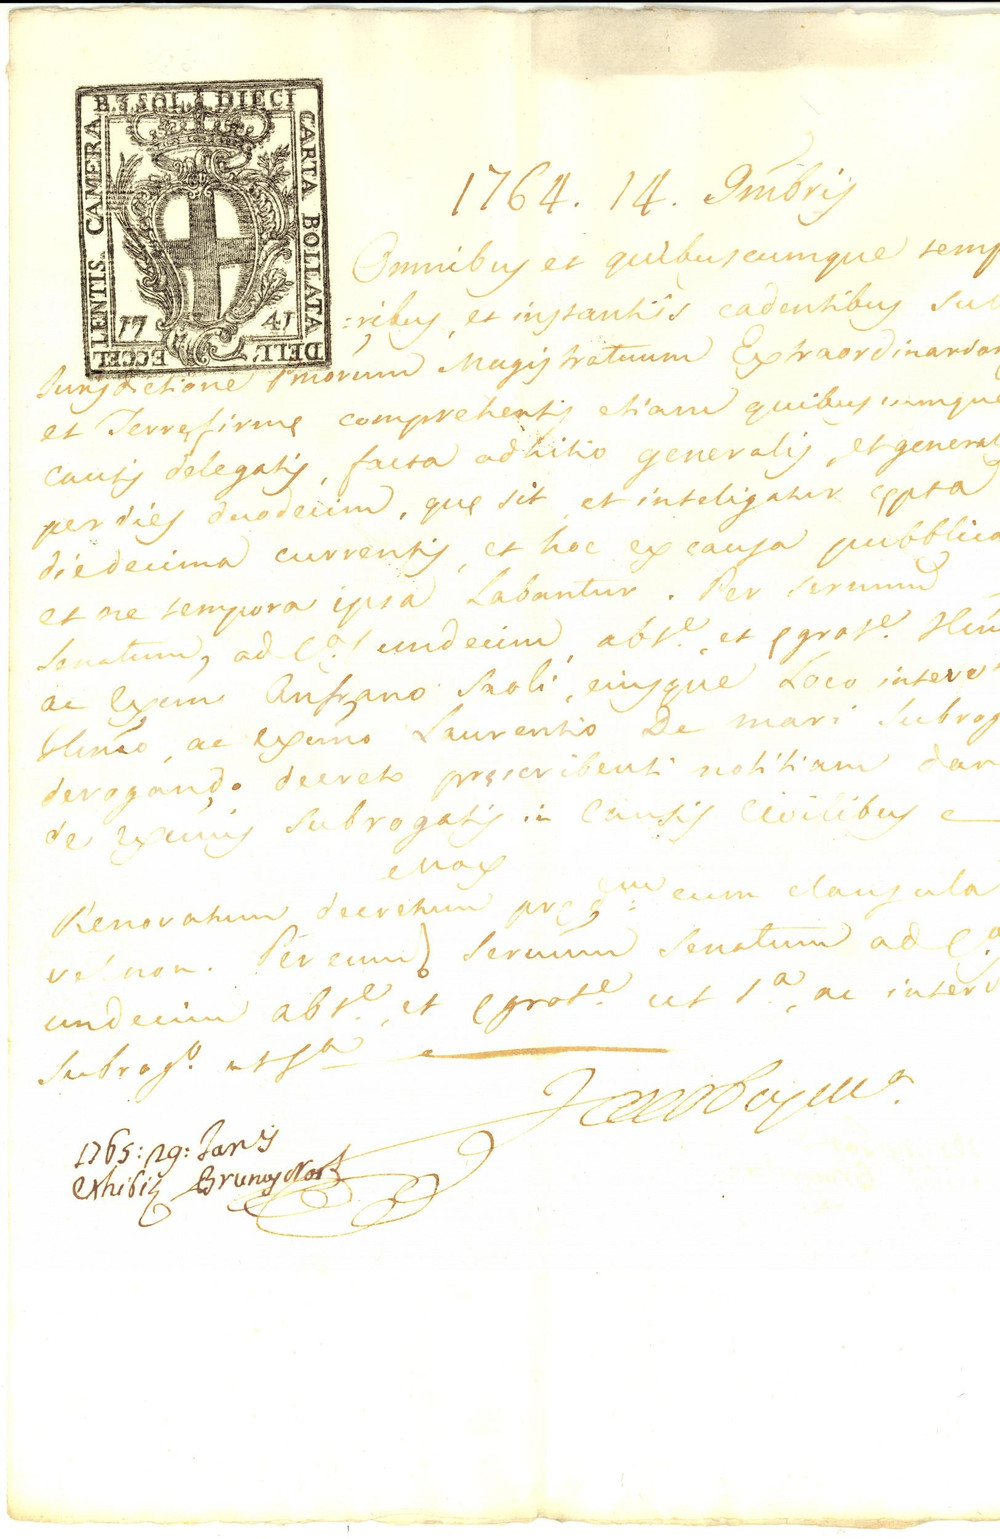 R. 3. SOL. DIECI
CARTA BOLLATA
DELL'
ECCEL
LENTIS. CAMERA
17 41
1764. 14. 9mbris
Omnibus et quibuscumque temp
=ribus, et instantiis cadentibus sub
Jurisdictione Magistratuum Extraordinarior
et Terrefirme comprehentis etiam quibuscumque
causis delegatis, facta additio generalis, et general
per dies duodecim, que sit et inteligatur cepta
die decima currentis, et hoc ex causa pubblica
et ne tempora ipsa Labantur. Per Sermum
Senatum, ad undecim abste. et
ac Exm Anfrano Saoli, eiusque Loco interv
Illmo, ac Exmo Laurentio De mari Subrog
derogando decreto prescribenti notitiam dar
de Exmis Subrogatis in Causis Civilibus e
Mox
Renovatum decretum cum clausula
vel non. Per eumd Sermum Senatum ad
undecim abste. et ut 1a, ac interv
Subrogo. utsa
1765: 29: Jan
exhibi Brunus Not